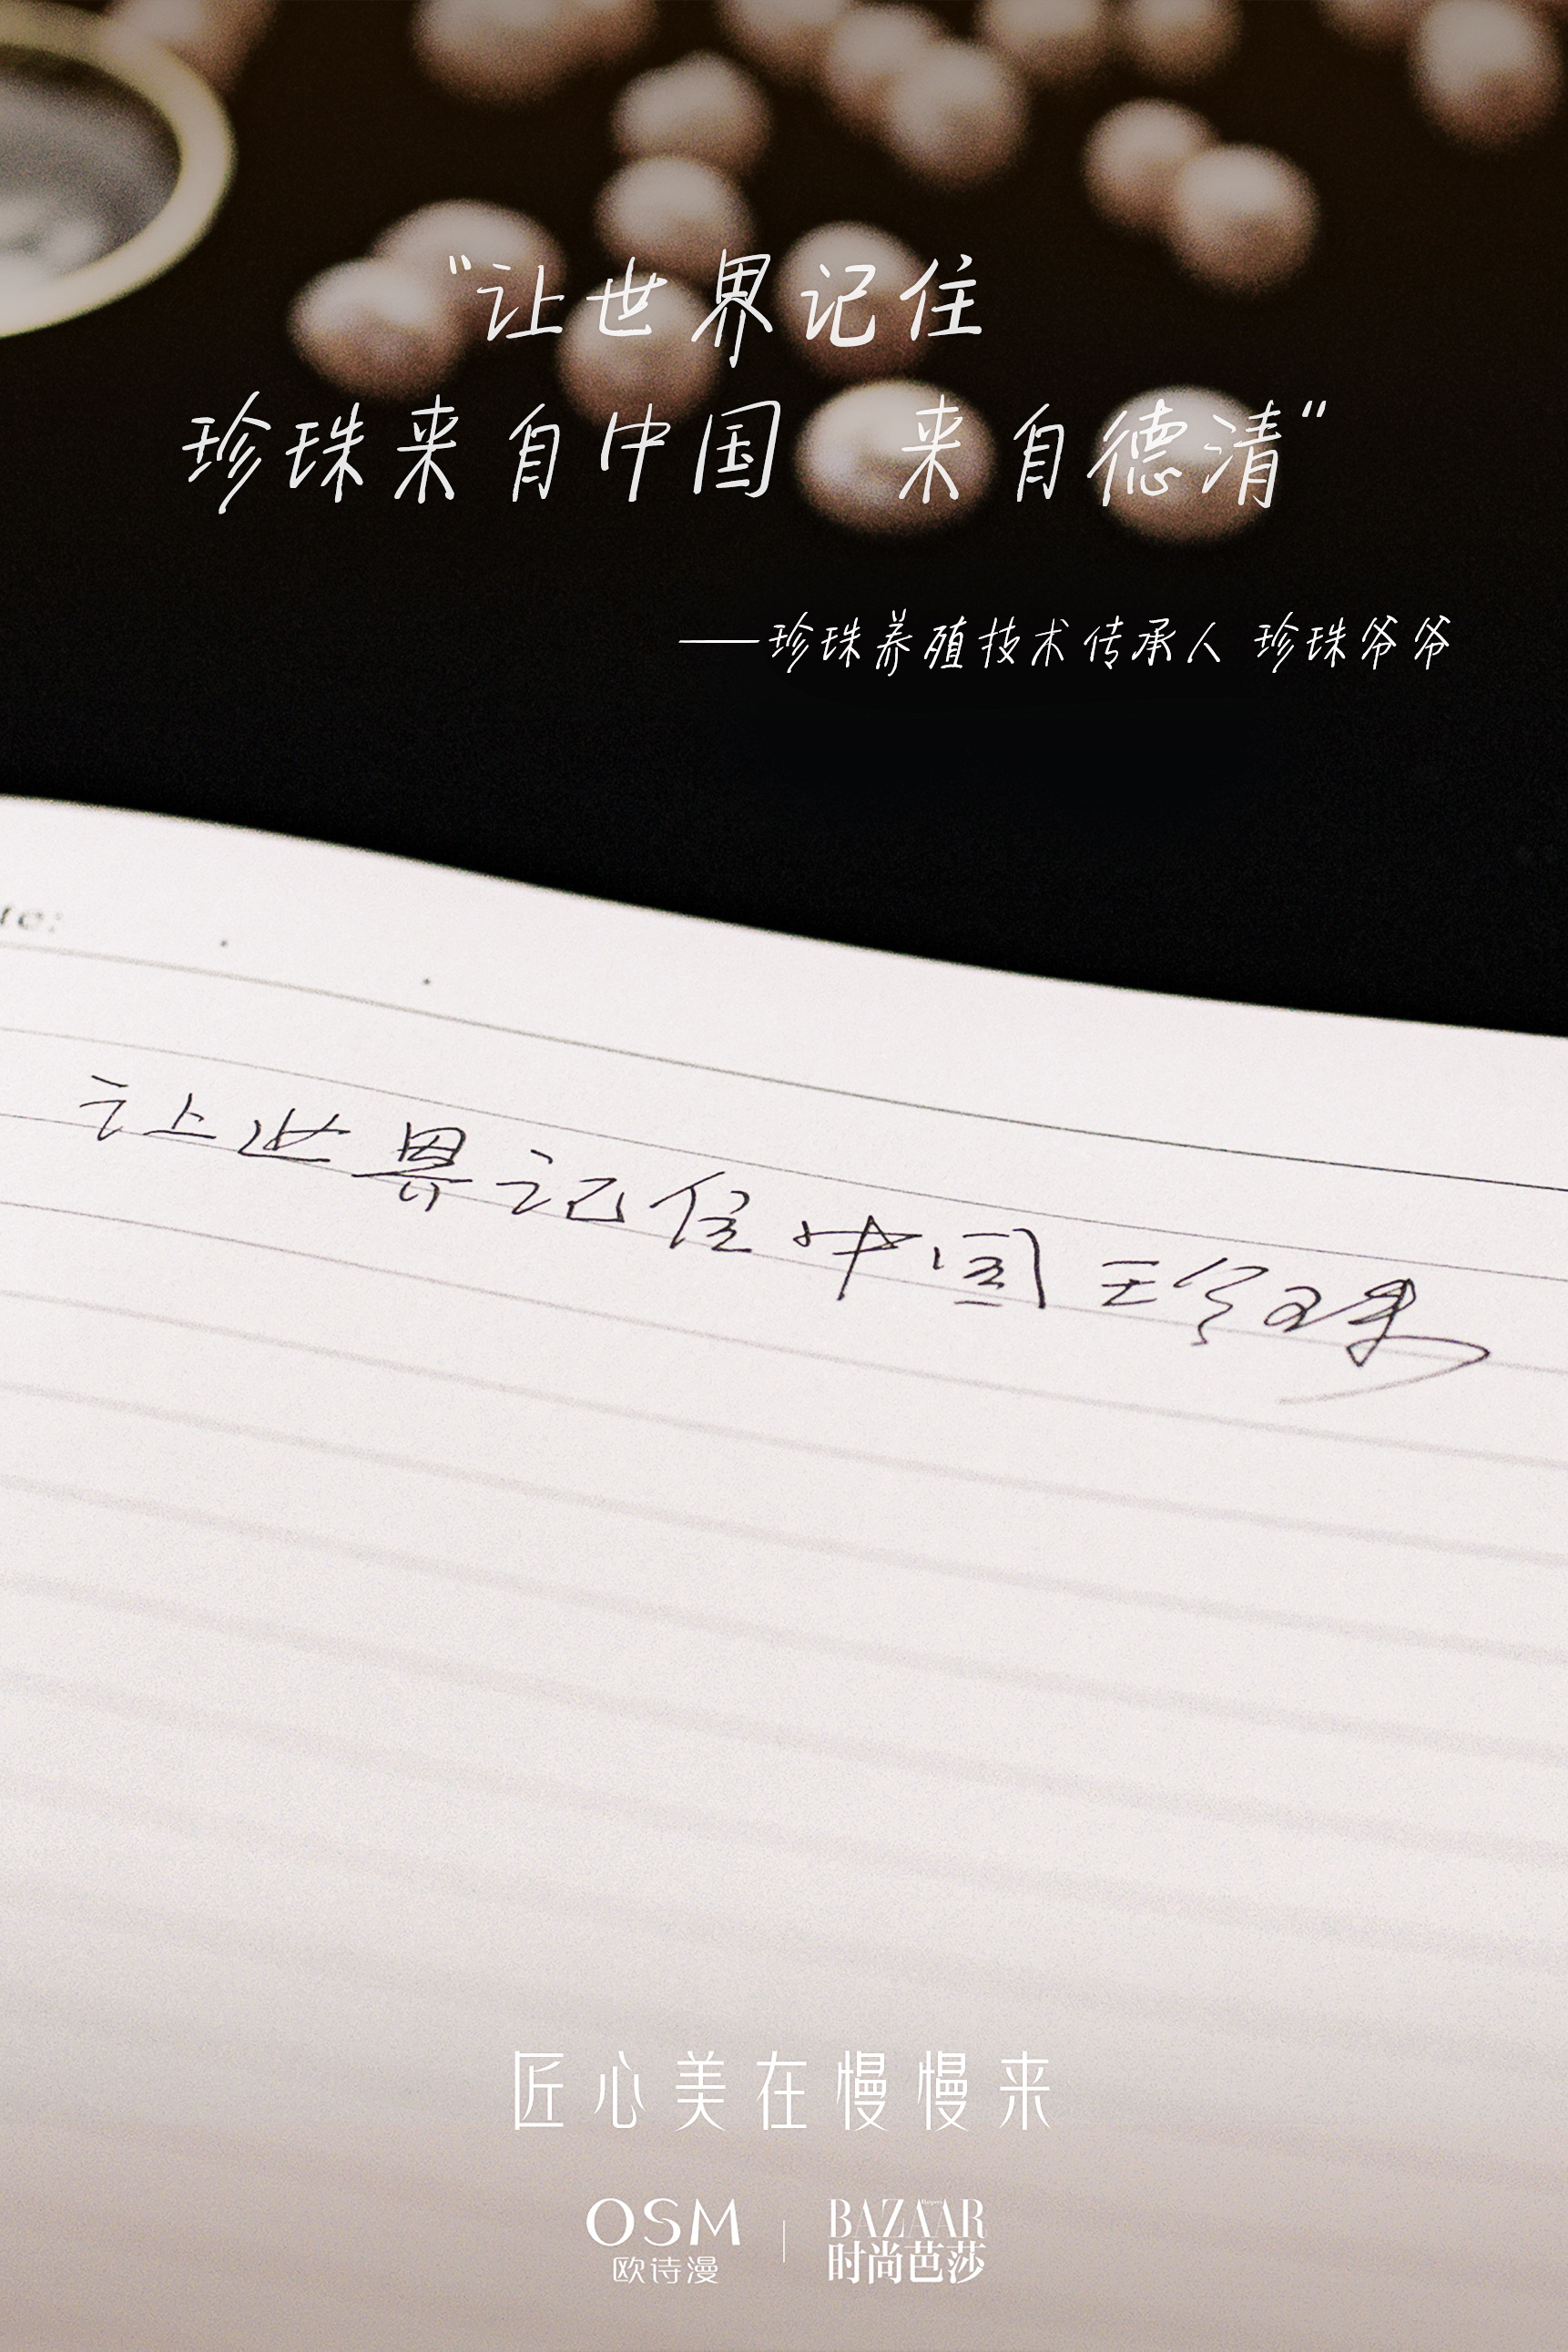 “让世界记住
珍珠来自中国 来自德清”
——珍珠养殖技术传承人 珍珠爷爷
te:
让世界记住中国珍珠
匠心美在慢慢来
OSM
欧诗漫
Harper's
BAZAAR
时尚芭莎